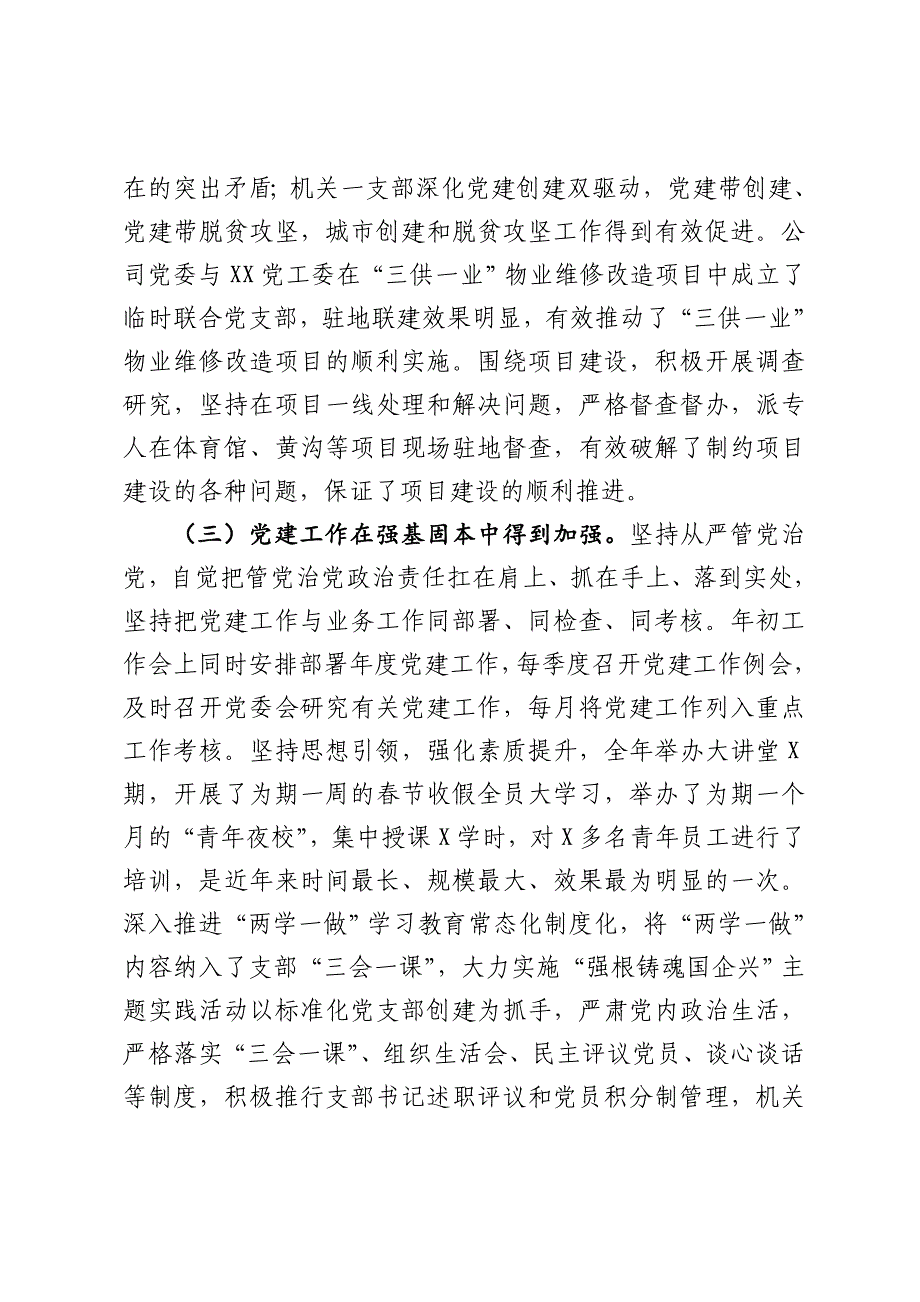 在的突出矛盾；机关一支部深化党建创建双驱动，党建带创建、
党建带脱贫攻坚，城市创建和脱贫攻坚工作得到有效促进。公
司党委与 XX 党工委在“三供一业”物业维修改造项目中成立了
临时联合党支部，驻地联建效果明显，有效推动了“三供一业”
物业维修改造项目的顺利实施。围绕项目建设，积极开展调查
研究，坚持在项目一线处理和解决问题，严格督查督办，派专
人在体育馆、黄沟等项目现场驻地督查，有效破解了制约项目
建设的各种问题，保证了项目建设的顺利推进。
（三）党建工作在强基固本中得到加强。坚持从严管党治
党，自觉把管党治党政治责任扛在肩上、抓在手上、落到实处，
坚持把党建工作与业务工作同部署、同检查、同考核。年初工
作会上同时安排部署年度党建工作，每季度召开党建工作例会，
及时召开党委会研究有关党建工作，每月将党建工作列入重点
工作考核。坚持思想引领，强化素质提升，全年举办大讲堂 X
期，开展了为期一周的春节收假全员大学习，举办了为期一个
月的“青年夜校”，集中授课 X 学时，对 X 多名青年员工进行了
培训，是近年来时间最长、规模最大、效果最为明显的一次。
深入推进“两学一做”学习教育常态化制度化，将“两学一做”
内容纳入了支部“三会一课”，大力实施“强根铸魂国企兴”主
题实践活动以标准化党支部创建为抓手，严肃党内政治生活，
严格落实“三会一课”、组织生活会、民主评议党员、谈心谈话
等制度，积极推行支部书记述职评议和党员积分制管理，机关